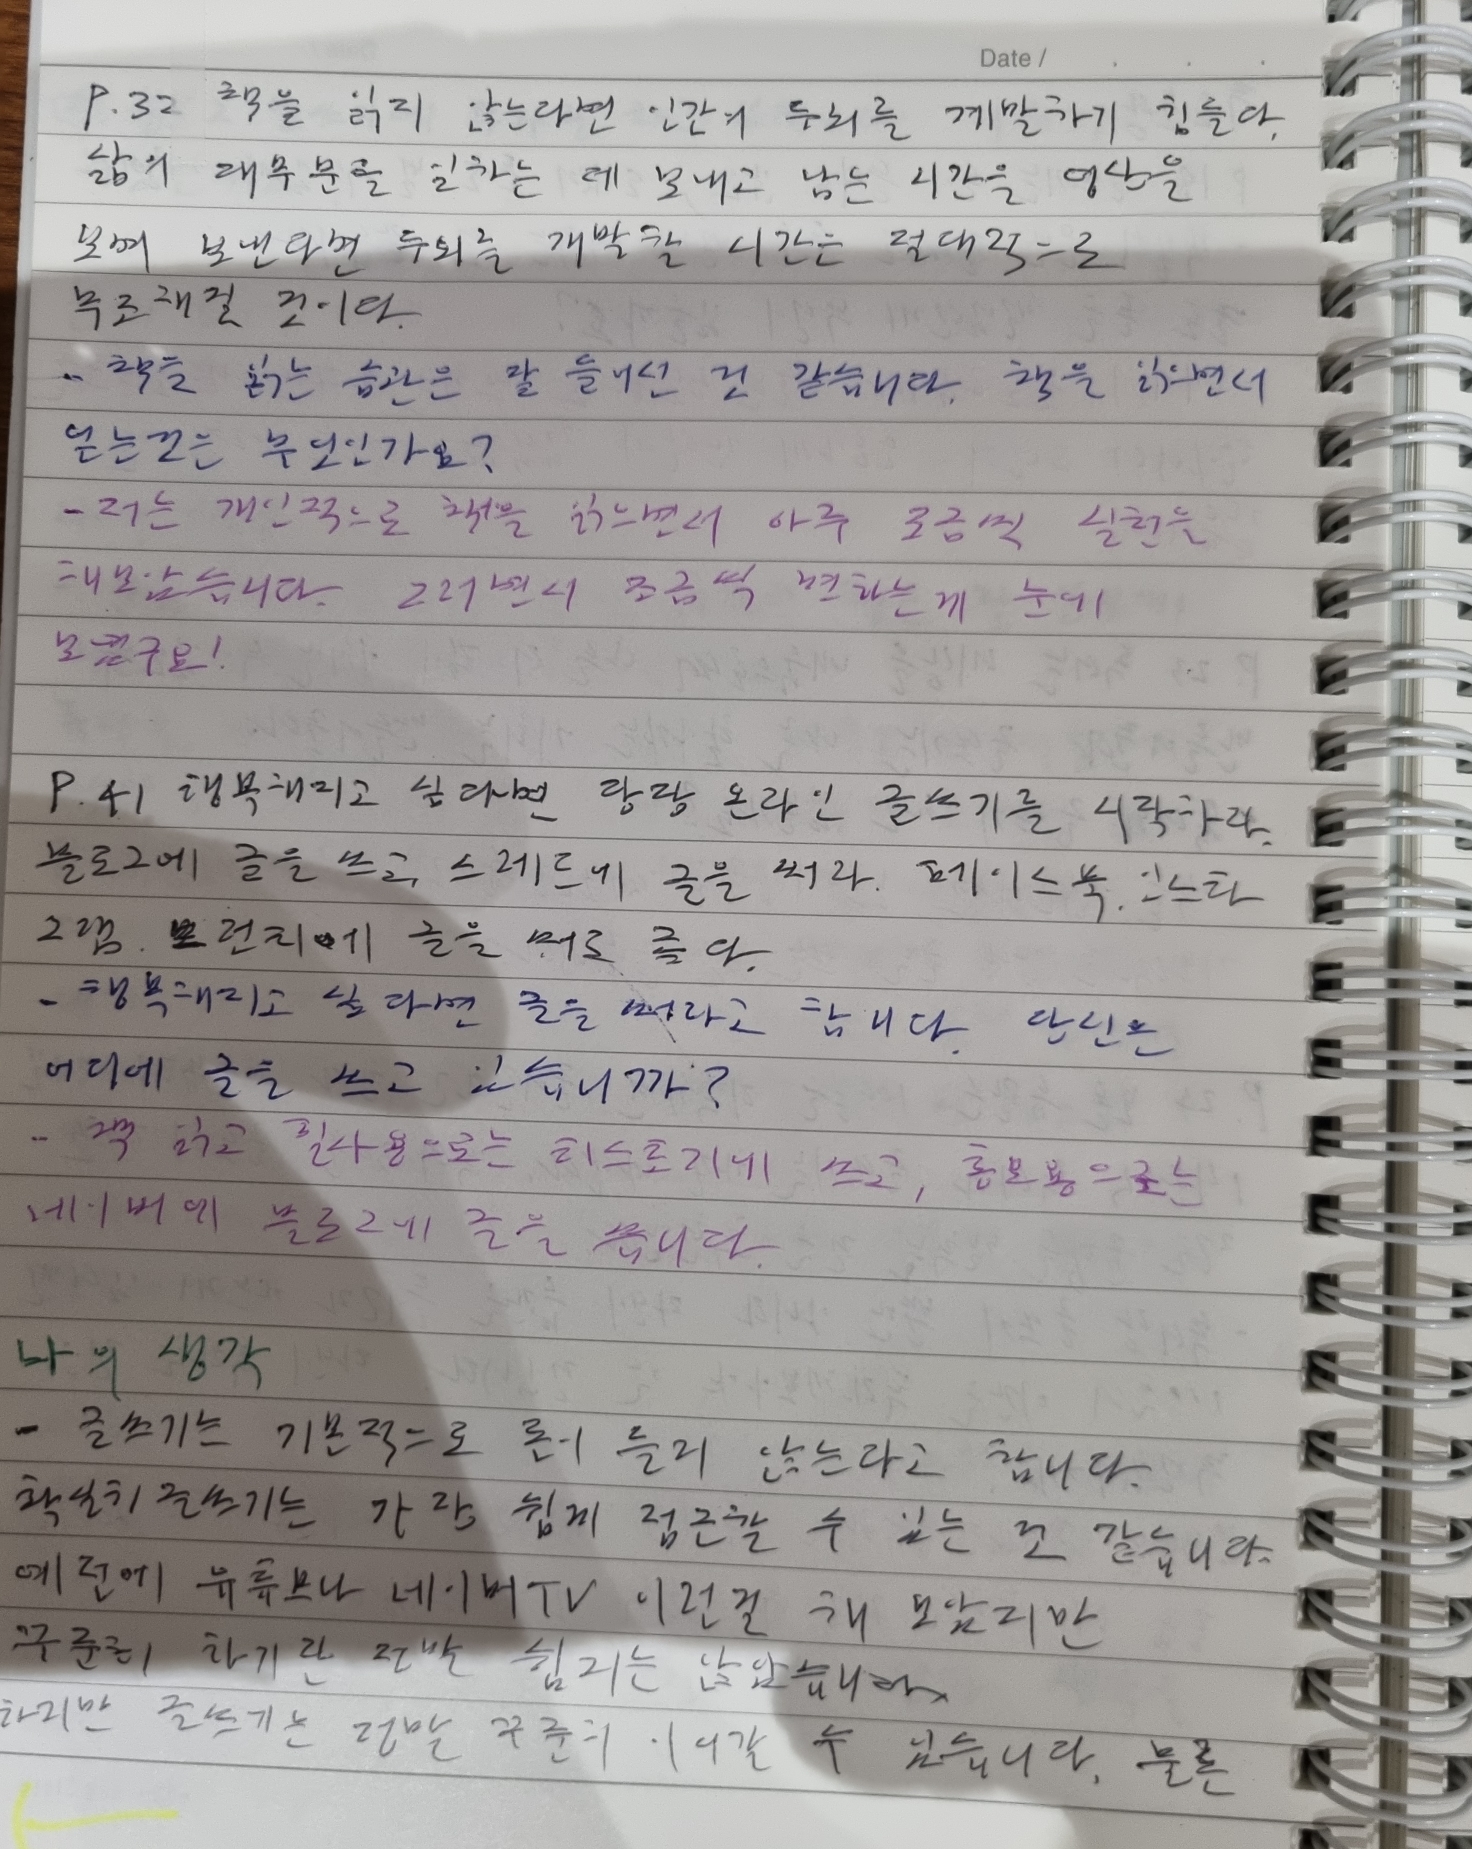 Date /
P.32 책을 읽지 않는다면 인간의 두뇌를 계발하기 힘들다.
삶의 대부분을 일하는 데 보내고 남는 시간을 영상을
보며 보낸다면 두뇌를 개발할 시간은 절대적으로
부로재질 것이다.
- 책을 읽는 습관은 잘 들이신 것 같습니다. 책을 읽으면서
얻는것은 무엇인가요?
- 저는 개인적으로 책을 읽으면서 아주 조금씩 실천을
해보았습니다. 그러면서 조금씩 변하는게 눈에
보였구요!
P.41 행복해지고 싶다면 당장 온라인 글쓰기를 시작하라.
블로그에 글을 쓰고, 스레드에 글을 써라. 페이스북. 인스타
그램. 브런치에 글을 써도 좋다.
- 행복해지고 싶다면 글을 써라고 합니다. 당신은
어디에 글을 쓰고 있습니까?
- 책 읽고 필사용으로는 티스토리에 쓰고, 홍보용으로는
네이버에 블로그에 글을 씁니다.
나의 생각
- 글쓰기는 기본적으로 돈이 들지 않는다고 합니다.
확실히 글쓰기는 가장 쉽게 접근할 수 있는 것 같습니다.
예전에 유튜브나 네이버TV 이런걸 해 보았지만
꾸준히 하기란 정말 쉽지는 않았습니다.
하지만 글쓰기는 정말 꾸준히 이어갈 수 있습니다. 물론